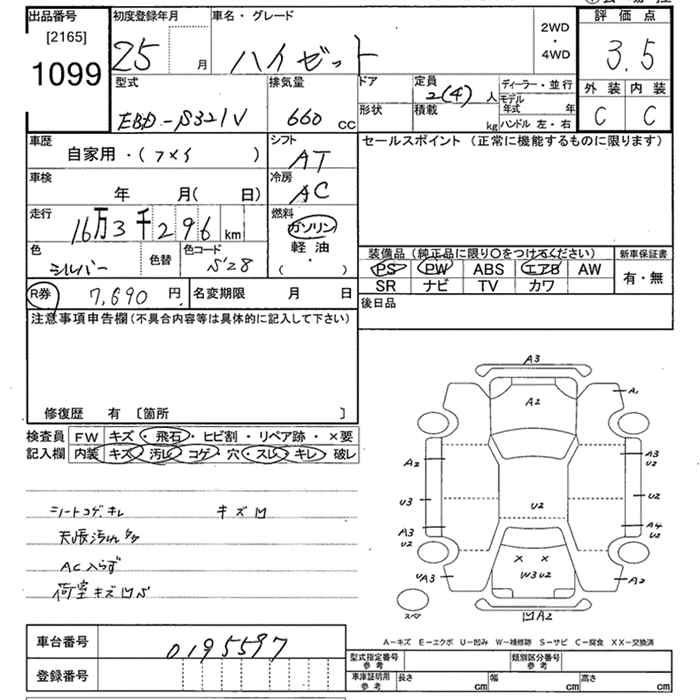 出品番号 初度登録年月 車名・グレード 評価点
[2165]
1099
25 月 ハイゼット 2WD ・ 4WD 3.5
型式 排気量 ドア 定員 2(4) 人 ディーラー・並行 外装 内装
EBD-S321V 660 cc 形状 積載 kg モデル年式 年 ハンドル 左・右 C C
車歴 シフト セールスポイント (正常に機能するものに限ります)
自家用・( ) AT
車検 冷房
年 月( 日) AC
走行 燃料
16万3千296 km ガソリン
軽油
・
( )
色 色替 色コード
シルバー S28
装備品(純正品に限り〇をつけてください) 新車保証書
PS PW ABS エアB AW 有・無
SR ナビ TV カワ
R券 7,690 円 名変期限 月 日 後日品
注意事項申告欄(不具合内容等は具体的に記入して下さい)
修復歴 有 [箇所 ]
検査員 FW キズ・飛石・ヒビ割・リペア跡・×要
記入欄 内装 キズ 汚レ コゲ・穴・スレ・キレ・破レ
シートコゲ、キレ キズ凹
天張汚れ
AC入らず
荷室キズ凹
A3
A2
A1
A2
A3
U2
U3
U2
U2
A3
U2
A4
U2
× ×
W3 U2
UA3
A2
スペア
凹A2
A-キズ E-エクボ U-凹み W-補修跡 S-サビ C-腐食 XX-交換済
車台番号 0195597
登録番号
型式指定番号 参考 類別区分番号 参考
車庫証明用 参考 長さ cm 幅 cm 高さ cm